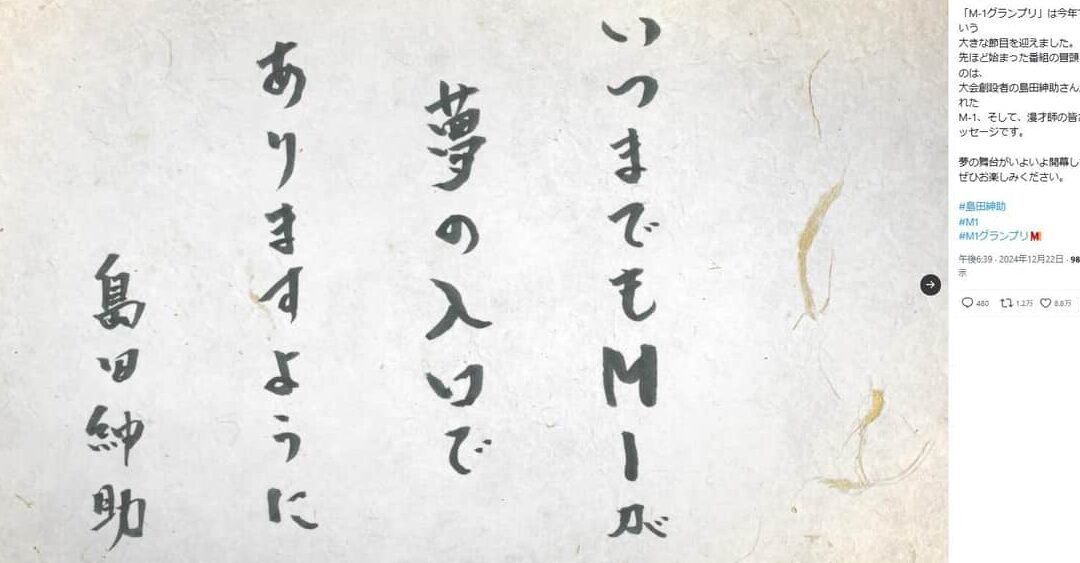 いつまでもM1が
夢の入口で
ありますように
島田紳助
「M-1グランプリ」は今年
いう
大きな節目を迎えました。
先ほど始まった番組の冒頭
のは、
大会創設者の島田紳助さん
れた
M-1、そして、漫才師の皆
ッセージです。
夢の舞台がいよいよ開幕し
ぜひお楽しみください。
#島田紳助
#M1
#M1グランプリM
午後6:39 · 2024年12月22日 · 98
示
480 1.2万 8.8万